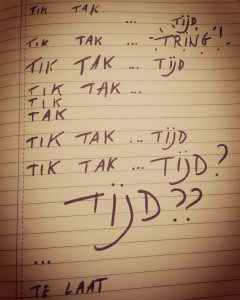 TIK TAK
... TIJD
TIK TAK ... TRING!
TIK TAK ... TIJD
TIK TAK ...
TIK
TAK
TIK TAK ... TIJD
TIK TAK ... TIJD?
TIJD??
...
TE LAAT